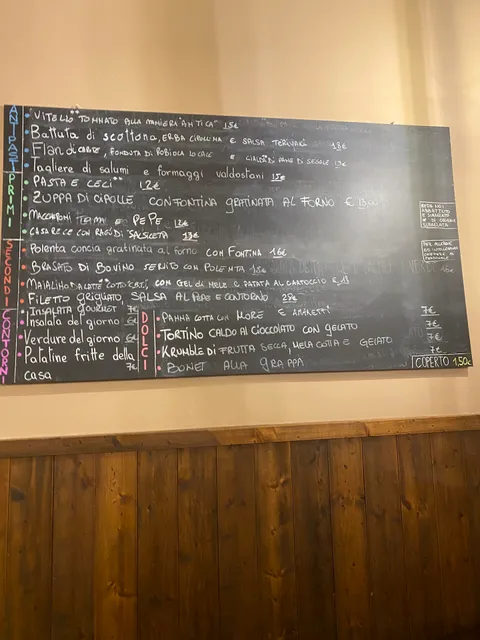 ANTIPASTI
• VITELLO TONNATO ALLA MANIERA "ANTICA" 15€
• Battuta di scottona, ERBA CIPOLLINA E SALSA TERIYAKI 13€
• Flan di CARDI, FONDUTA DI ROBIOLA LOCALE E CIALDA DI PANE DI SEGALE 13€
• Tagliere di salumi e formaggi valdostani 15€
PRIMI
• PASTA E CECI ** 12€
• ZUPPA DI CIPOLLE CON FONTINA GRATINATA AL FORNO € 13,00
• MACCHERONI E PEPE 12€
• CASARECCE CON RAGÙ DI SALSICCIA 13€
SECONDI
• Polenta concia gratinata al forno CON FONTINA 16€
• BRASATO DI BOVINO SERVITO CON POLENTA 18€
• MAIALINO DA LATTE "COTTO", CON GEL DI MELE E PATATA AL CARTOCCIO €
• FILETTO GRIGLIATO, SALSA AL PEPE E CONTORNO 25€
CONTORNI
• INSALATA GOURMET 7€
• Insalata del giorno 6€
• Verdure del giorno 6€
• Patatine fritte della casa 7€
DOLCI
• PANNA COTTA CON MORE E AMARETTI 7€
• TORTINO CALDO AL CIOCCOLATO CON GELATO 7€
• KRUMBLE DI FRUTTA SECCA, MELA COTTA E GELATO 7€
• BONET ALLA GRAPPA 7€
COPERTO 1,50€